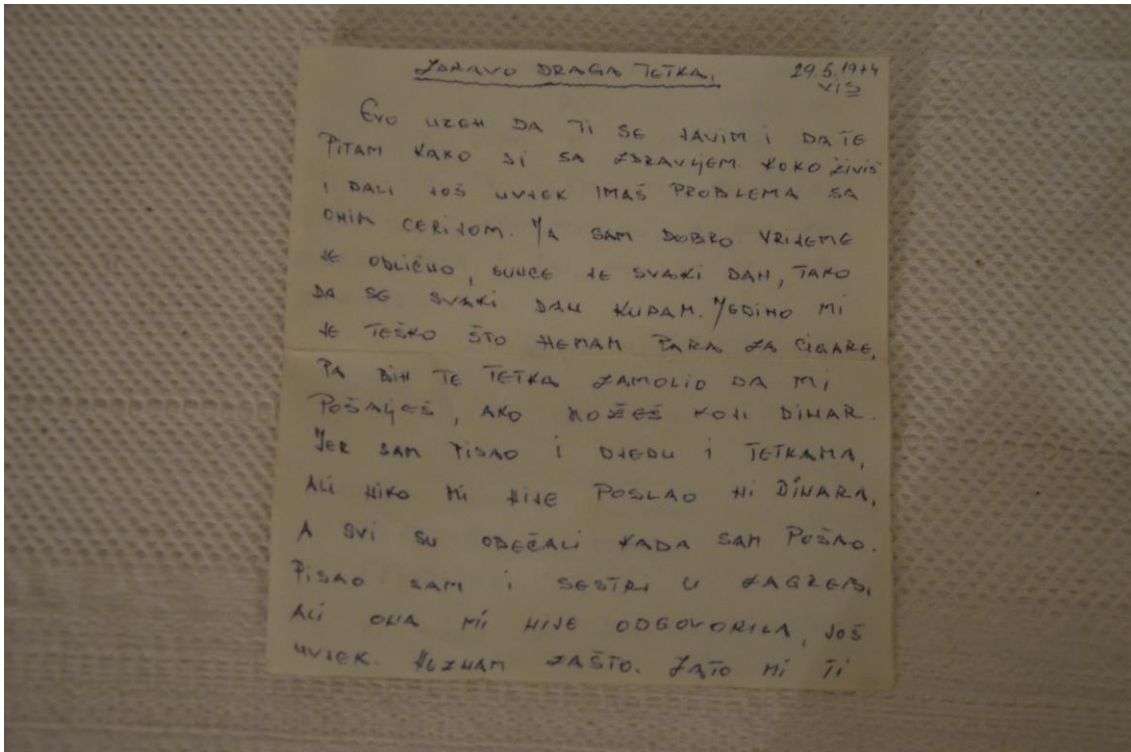 ZDRAVO DRAGA TETKA,
29.5.1974
VIS
EVO UZEH DA TI SE JAVIM I DA TE
PITAM KAKO SI SA ZDRAVLJEM. KOKO ŽIVIŠ
I DALI JOŠ UVJEK IMAŠ PROBLEMA SA
ONIM CERIJOM. JA SAM DOBRO VRIJEME
JE ODLIČNO, SUNCE JE SVAKI DAN, TAKO
DA SE SVAKI DAN KUPAM. JEDINO MI
JE TEŠKO ŠTO NEMAM PARA ZA CIGARE.
PA BIH TE TETKA ZAMOLIO DA MI
POŠALJEŠ, AKO MOŽEŠ KOJI DINAR.
JER SAM PISAO I DJEDU I TETKAMA,
ALI NIKO MI NIJE POSLAO NI DINARA,
A SVI SU OBEČALI KADA SAM POŠAO.
PISAO SAM I SESTRI U ZAGREB,
ALI ONA MI NIJE ODGOVORILA, JOŠ
UVJEK. NEZNAM ZAŠTO. ZATO MI TI